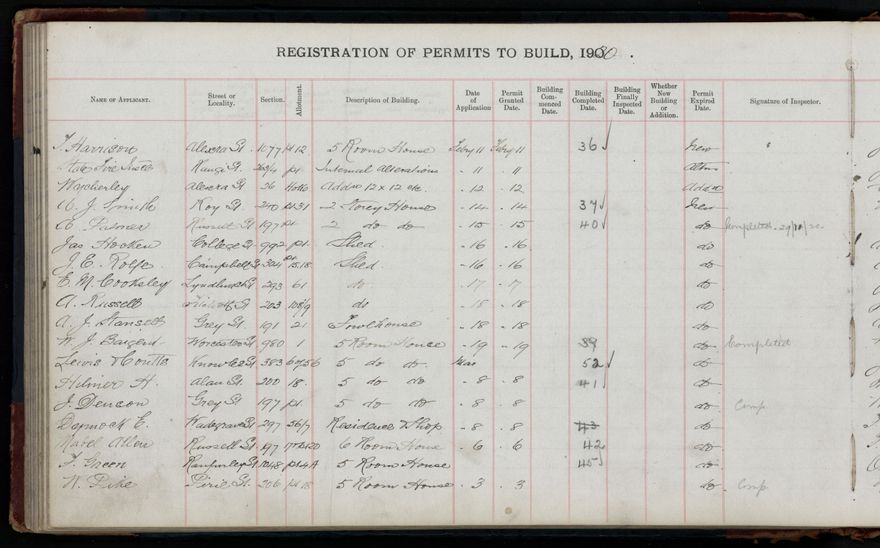 REGISTRATION OF PERMITS TO BUILD, 1920.
NAME OF APPLICANT. Street or Locality. Section. Allotment. Description of Building. Date of Application Permit Granted Date. Building Commenced Date. Building Completed Date. Building Finally Inspected Date. Whether New Building or Addition. Permit Expired Date. Signature of Inspector.
T. Harrison Alexra St. 1077 pt 12 5 Room House Feby 11 Feby 11 36 ✓ New
State Fire Insce Rangi St. pt Internal Alterations " 11 " 11
Wycherley Alexra St 26 Addn 12 x 12 etc. " 12 . 12 Addn
J. Smith Roy St. 240 pt 31 2 Storey House " 14 " 14 37 ✓ New
Palmer Russell St 197 pt 2 do do " 15 15 40 ✓ do Completed
Jas Hocken College St 992 pt. Shed. " 16 " 16 do
J. E. Rolfe Campbell St 324 pt 15.18. Shed. " 16 " 16 do
E. M. Cooksley Lyndhurst St 293 61 do " 17 " 17 do
A. Russell 203 do " 18 " 18 do
A. J. Stansell Grey St. 191 21 Fowlhouse " 18 " 18 do
W. J. Sargent Worcester St 980 1 5 Room House " 19 " 19 39 do Completed
Lewis Coutts Knowles St 383 5 do do. Mar 52 ✓ do
Hilmer H. Alan St. 200 18 5 do do " 8 " 8 41 ✓ do
J. Deacon Grey St 197 pt. 5 do do " 8 " 8 do Comp.
Daymock E. Wadegrave St 297 36/7 Residence & Shop " 8 . 8 43 do
Mabel Allen Russell St 197 6 Room House " 6 " 6 42 do
F. Green Ranfurley St 1048 pt 4A 5 Room House 45 ✓ do
W. Pike Pirie St. 206 pt 18 5 Room House " 3 . 3 do Comp.